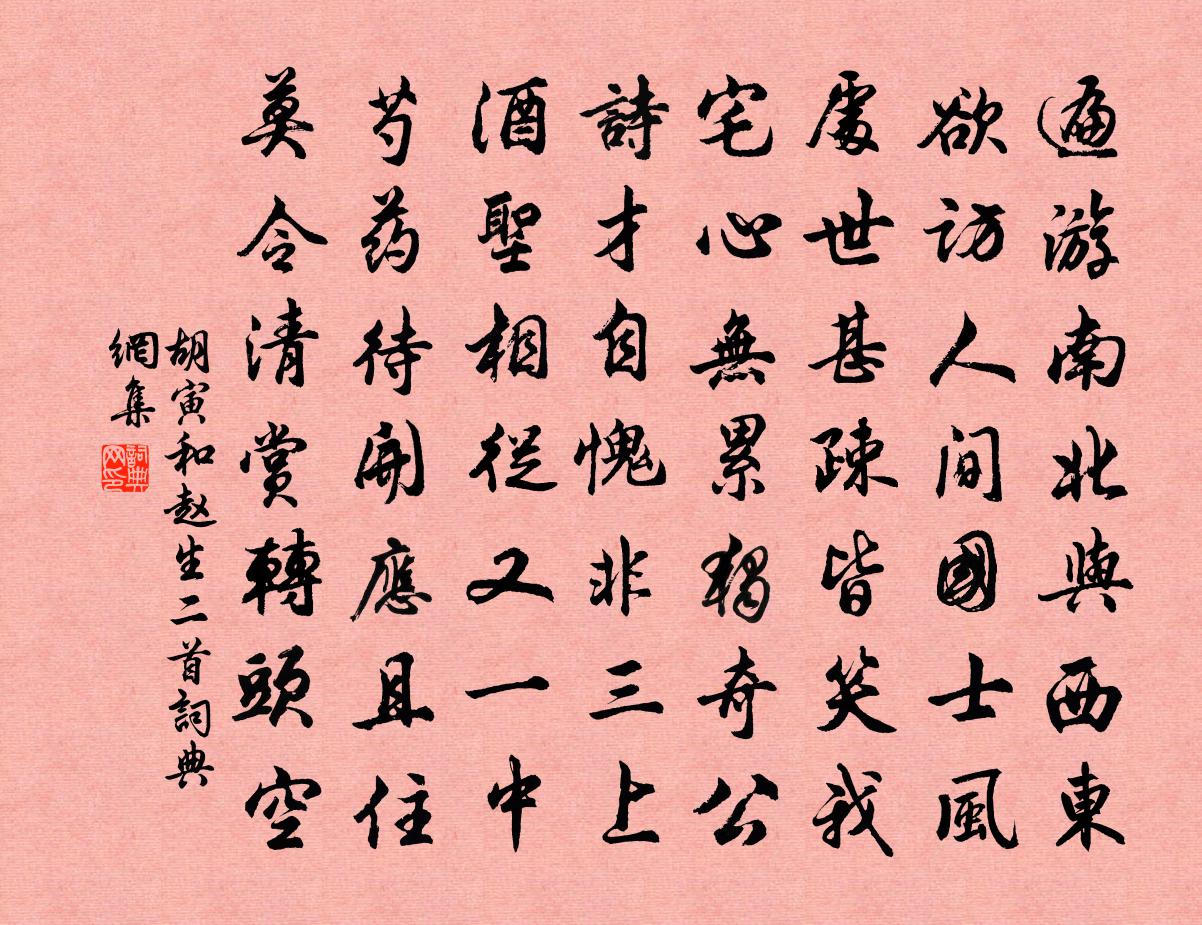 遍游南北與西東
欲访人間國士風
處世甚疎皆笑我
宅心無累獨奇公
詩才自愧非三上
酒聖相從又一中
芍药待開應且住
莫令清賞轉頭空
胡寅和赵生二首詞典
網集
詞典
网印